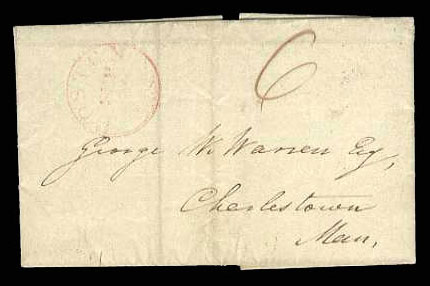 6
George W. Warren Esq,
Charlestown
Mass,